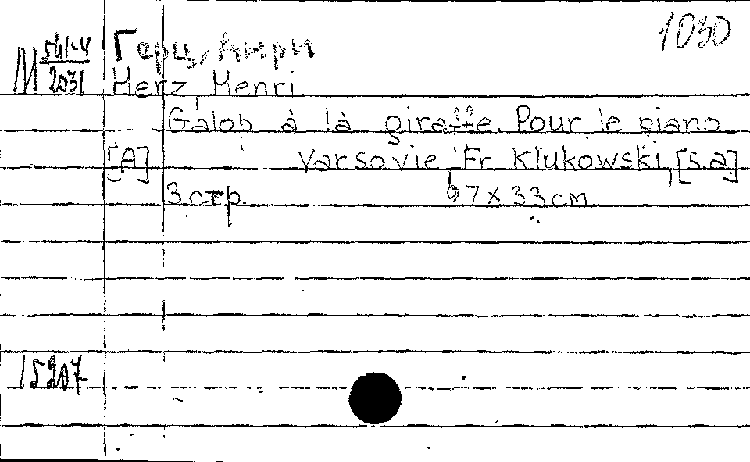 1030
M 541-4/2031
Герц, Анри
Herz, Henri
Galop à la giraffe. Pour le piano
[A] Varsovie, Fr Klukowski, [s.a]
3 стр. 27 x 33 cm
15207